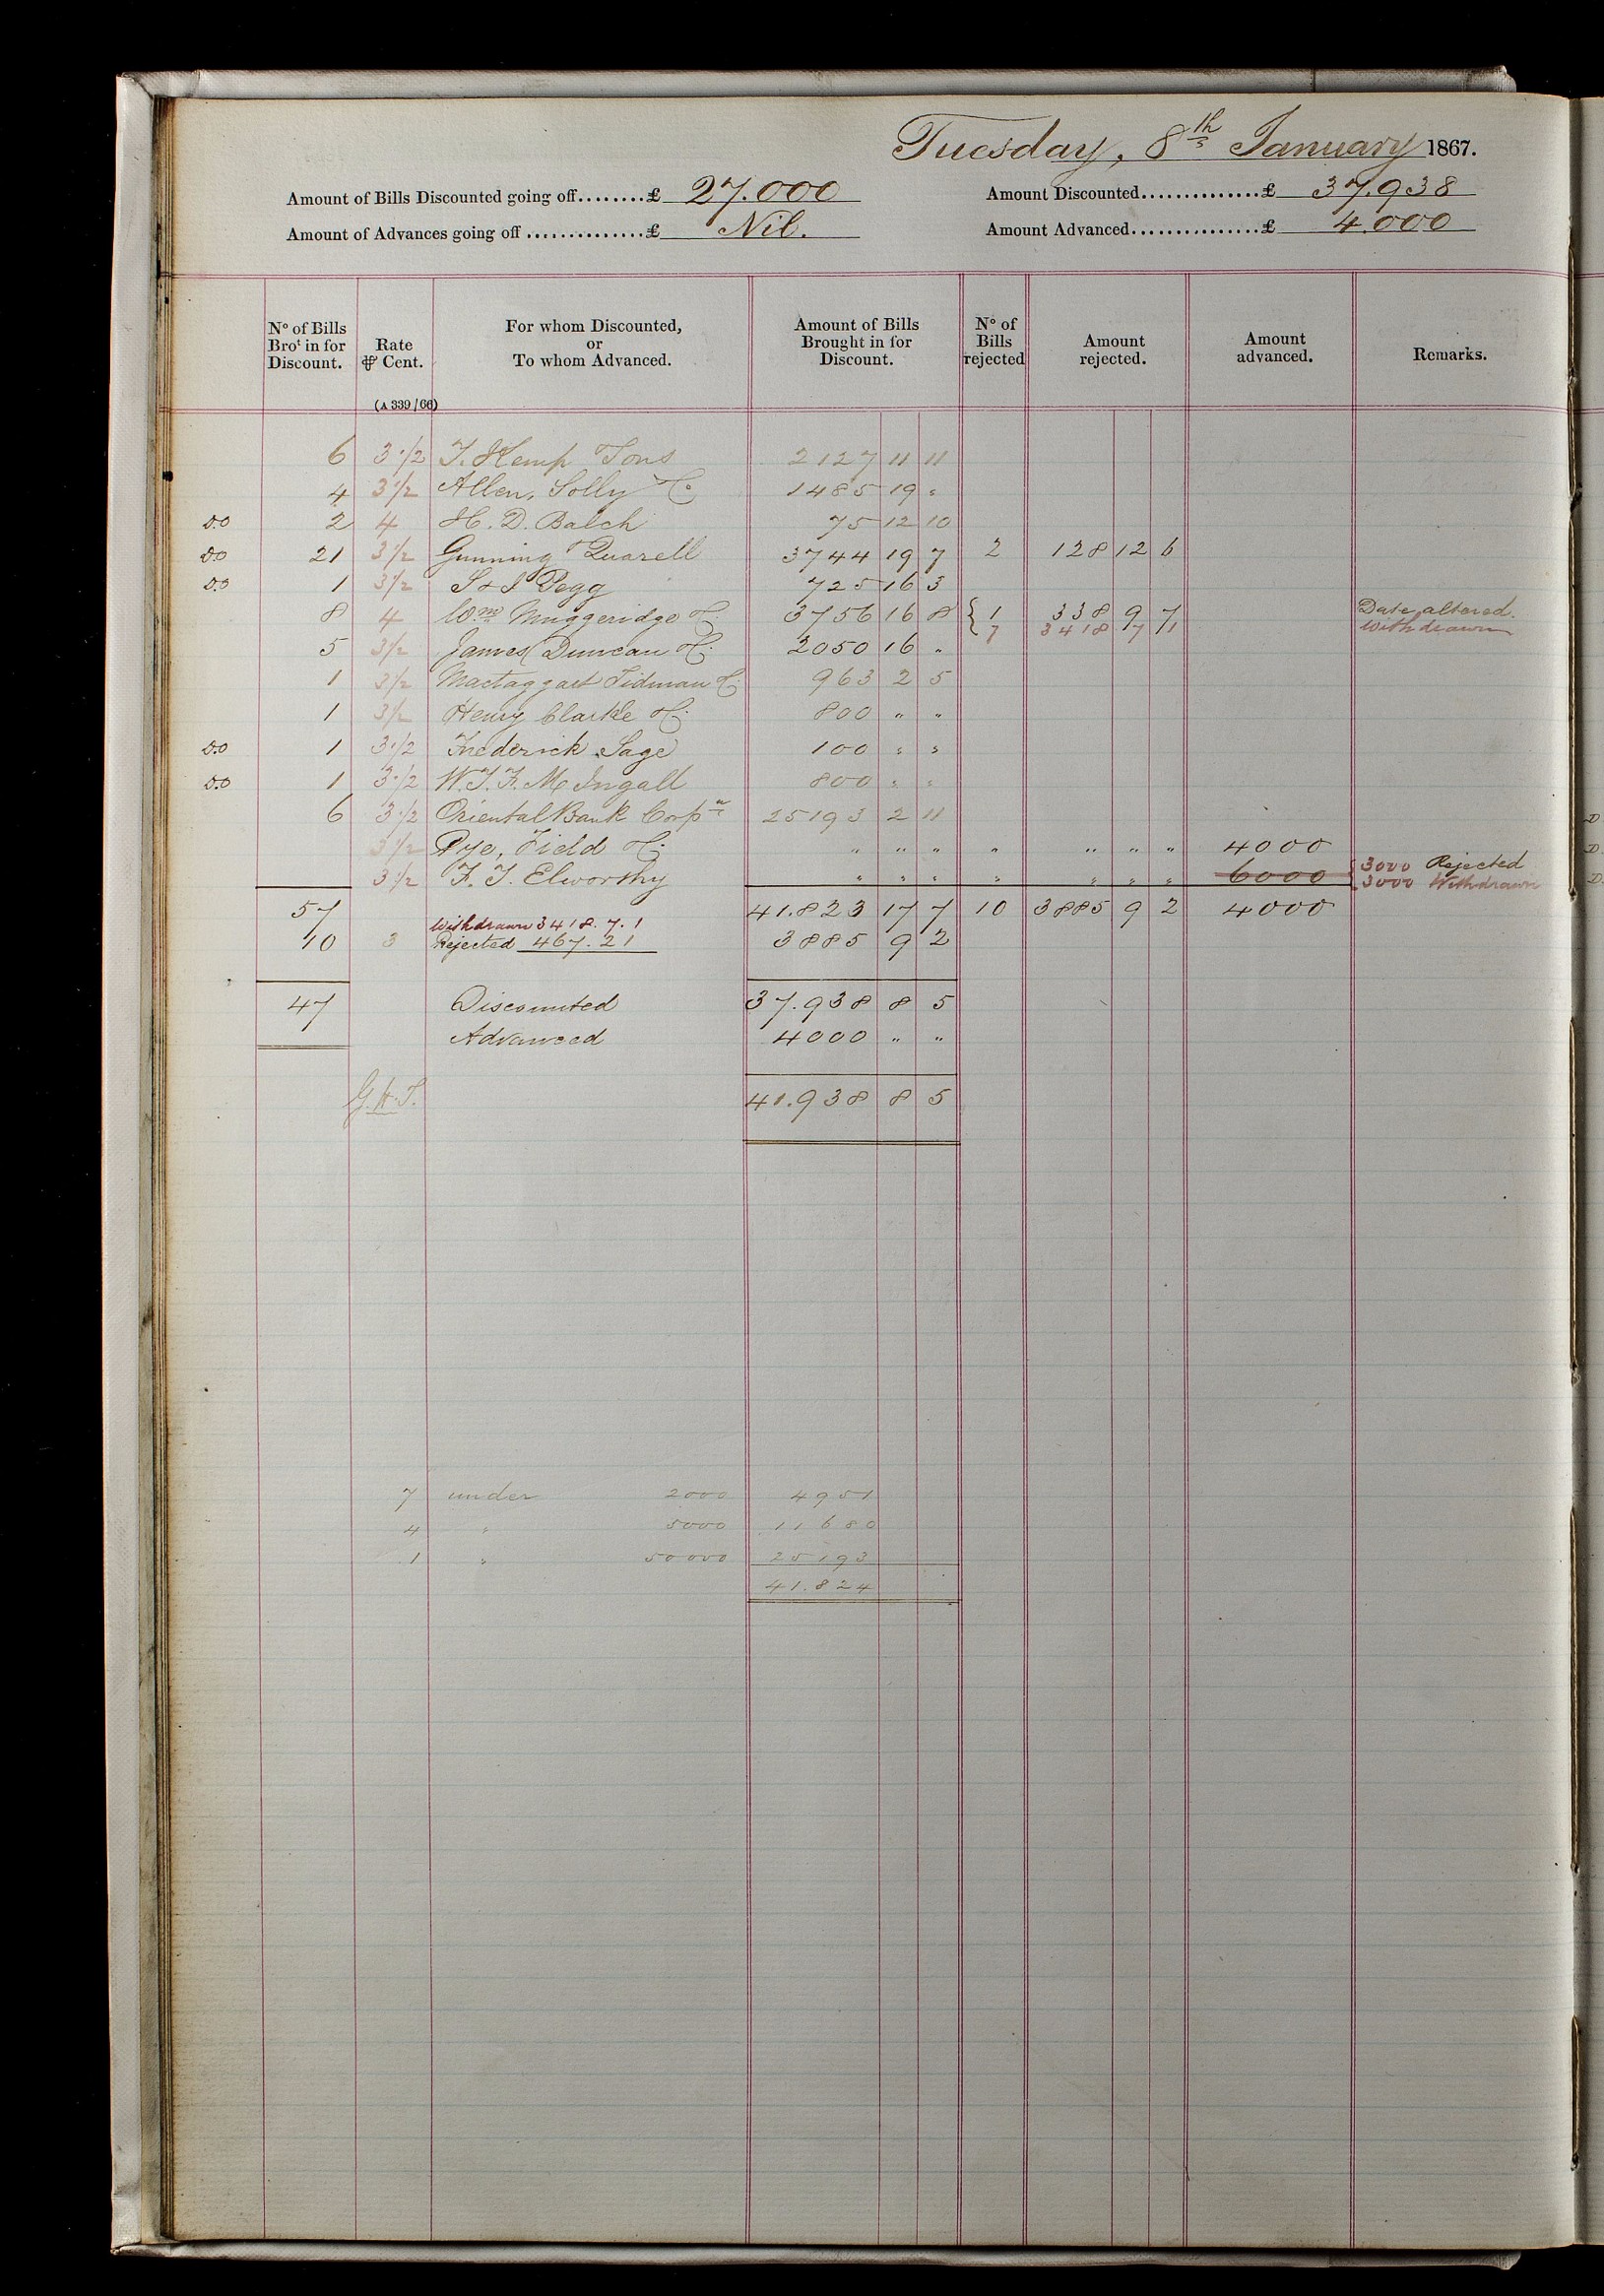 Tuesday, 8th January 1867.
Amount of Bills Discounted going off........£ 27.000 Amount Discounted..............£ 37.938
Amount of Advances going off ..............£ Nil. Amount Advanced................£ 4.000
No of Bills Brot in for Discount. Rate ⅌ Cent. For whom Discounted, or To whom Advanced. Amount of Bills Brought in for Discount. No of Bills rejected Amount rejected. Amount advanced. Remarks.
(A 339/66)
6 3 1/2 T. Kemp & Sons 2127 11 11
4 3 1/2 Allen, Solly & Co 1485 19 "
Do 2 4 H. D. Balch 75 12 10
Do 21 3 1/2 Gunning & Quarell 3744 19 7 2 128 12 6
Do 1 3 1/2 S & I Pegg 725 16 3
8 4 Wm Muggeridge & Co 3756 16 8 { 1 338 9 7 Date altered.
7 3418 7 1 Withdrawn
5 3 1/2 James Duncan & Co. 2050 16 "
1 3 1/2 Mactaggart Tidman & Co 963 2 5
1 3 1/2 Henry Clarke & Co. 800 " "
Do 1 3 1/2 Frederick Sage 100 " "
Do 1 3 1/2 W. T. F. M. Ingall 800 " "
6 3 1/2 Oriental Bank Corpn 25193 2 11
3 1/2 Pye, Field & Co. " " " " " " " 4000
3 1/2 F. T. Elworthy " " " " " " " 6000 { 3000 Rejected
3000 Withdrawn
57 41.823 17 7 10 3885 9 2 4000
Withdrawn 3418. 7. 1
10 3 Rejected 467. 2 1 3885 9 2
47 Discounted 37.938 8 5
Advanced 4000 " "
G.H.T. 41.938 8 5
7 under 2000 4951
4 " 5000 11680
1 " 50000 25193
41.824